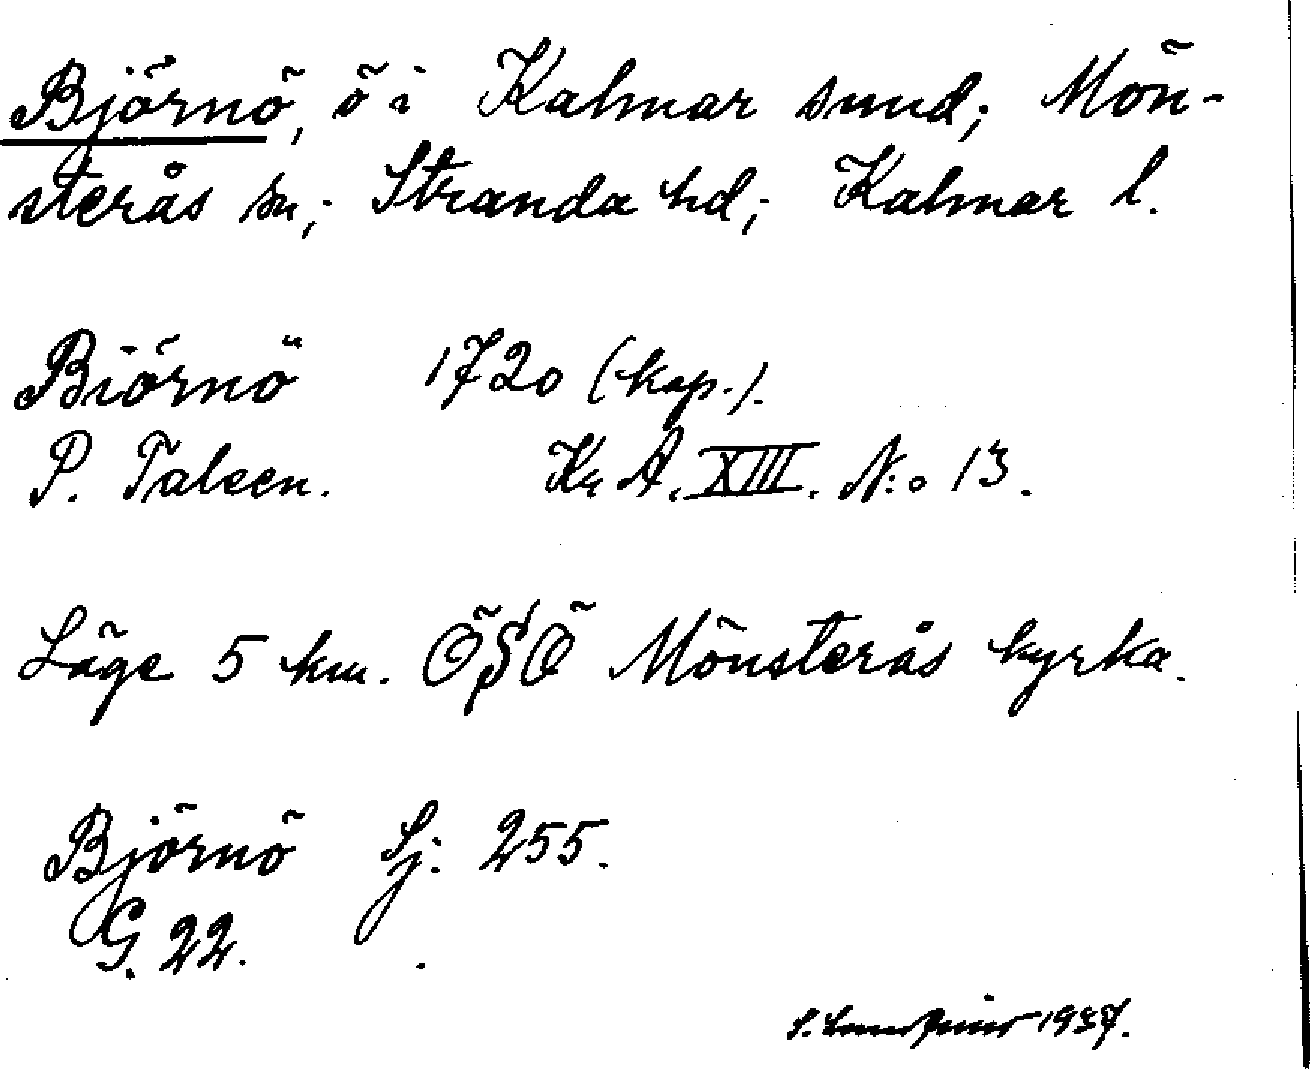 Björnö, ö i Kalmar sund; Mön-
sterås sn; Stranda hd; Kalmar l.
Biörnö 1720 (kop.).
P. Taleen. Kr A. XIII. N:o 13.
Läge 5 km. ÖSÖ Mönsterås kyrka.
Björnö Sj. 255.
G. 22.
S. 1937.